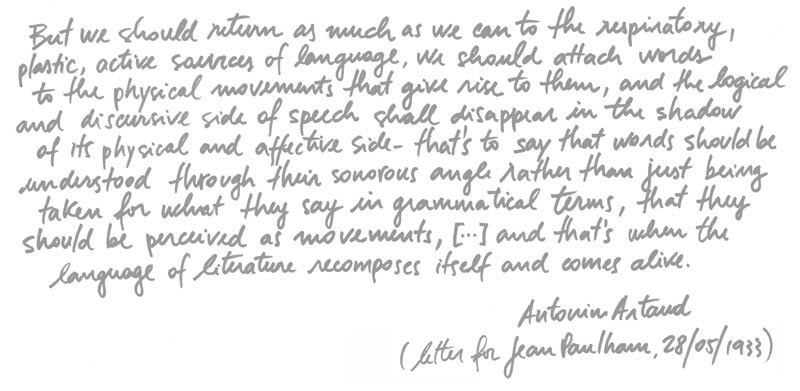 But we should return as much as we can to the respiratory,
plastic, active sources of language, we should attach words
to the physical movements that give rise to them, and the logical
and discursive side of speech shall disappear in the shadow
of its physical and affective side- that's to say that words should be
understood through their sonorous angle rather than just being
taken for what they say in grammatical terms, that they
should be perceived as movements, [...] and that's when the
language of literature recomposes itself and comes alive.
Antonin Artaud
(letter for Jean Paulham, 28/05/1933)